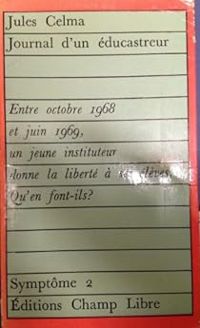 Jules Celma
Journal d'un éducastreur
Entre octobre 1968
et juin 1969,
un jeune instituteur
donne la liberté à ses élèves.
Qu'en font-ils?
Symptôme 2
Éditions Champ Libre